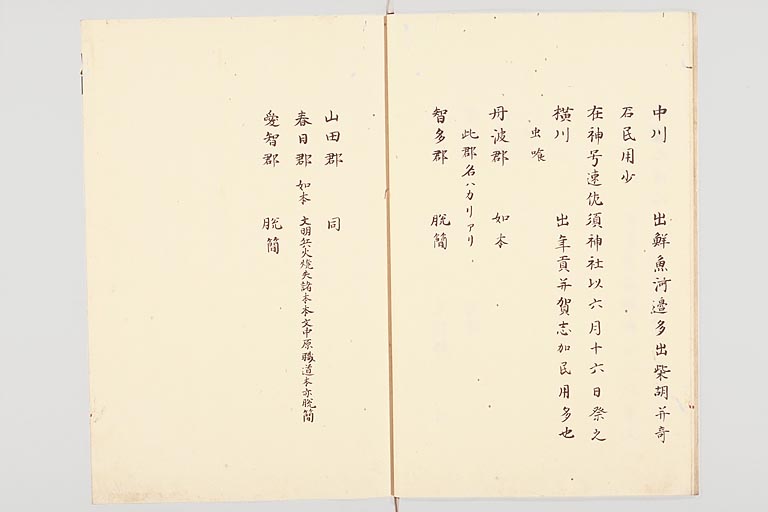 中川　出鮮魚河邉多出柴胡并奇
石民用少
在神号速佐須神社以六月十六日祭之
横川　出年貢并賀志加民用多也
虫喰
丹波郡　如本
此郡名ハカリアリ
智多郡　脱簡
山田郡　同
春日郡　如本　文明兵火焼失諸本本文中原職道本亦脱簡
愛智郡　脱簡